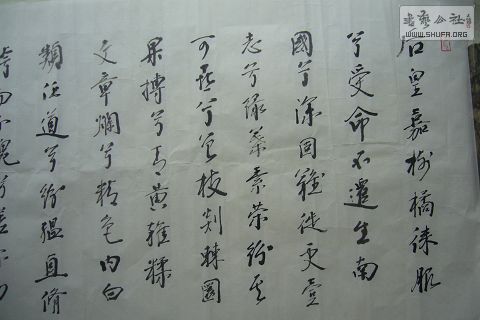 书艺公社
WWW.SHUFA.ORG
后皇嘉樹橘徠服
兮受命不遷生南
國兮深固難徙更壹
志兮緑葉素榮紛其
可喜兮曾枝剡棘圓
果摶兮青黄雜糅
文章爛兮精色内白
類任道兮紛緼宜脩